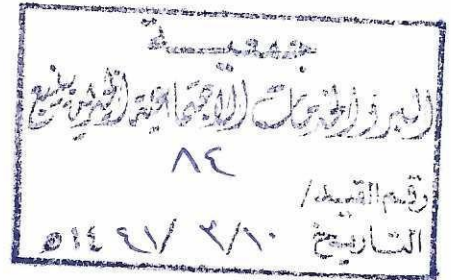 جمعية
البر والخدمات الاجتماعية الخيرية بينبع
٨٤
رقم القيد /
التاريخ ١٠/ ٣/ ١٤٤١هـ